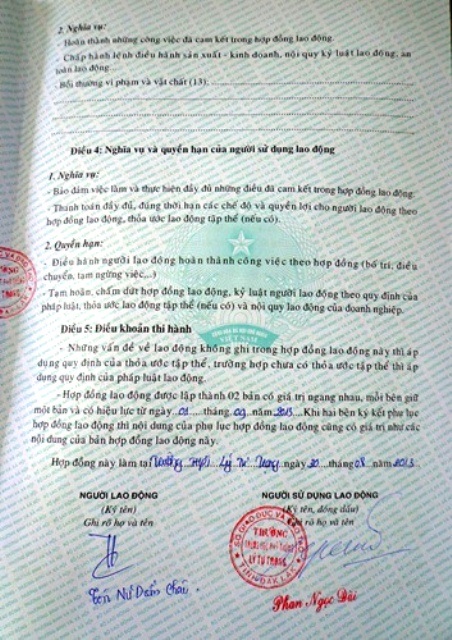 2. Nghĩa vụ:
- Hoàn thành những công việc đã cam kết trong hợp đồng lao động.
- Chấp hành lệnh điều hành sản xuất - kinh doanh, nội quy kỷ luật lao động, an
toàn lao động...
- Bồi thường vi phạm và vật chất (13):
Điều 4: Nghĩa vụ và quyền hạn của người sử dụng lao động
1. Nghĩa vụ:
- Bảo đảm việc làm và thực hiện đầy đủ những điều đã cam kết trong hợp đồng lao động.
- Thanh toán đầy đủ, đúng thời hạn các chế độ và quyền lợi cho người lao động theo
hợp đồng lao động, thỏa ước lao động tập thể (nếu có).
2. Quyền hạn:
- Điều hành người lao động hoàn thành công việc theo hợp đồng (bố trí, điều
chuyển, tạm ngừng việc...)
- Tạm hoãn, chấm dứt hợp đồng lao động, kỷ luật người lao động theo quy định của
pháp luật, thỏa ước lao động tập thể (nếu có) và nội quy lao động của doanh nghiệp.
VIỆT NAM
Điều 5: Điều khoản thi hành
- Những vấn đề về lao động không ghi trong hợp đồng lao động này thì áp
dụng quy định của thỏa ước tập thể, trường hợp chưa có thỏa ước tập thể thì áp
dụng quy định của pháp luật lao động.
- Hợp đồng lao động được lập thành 02 bản có giá trị ngang nhau, mỗi bên giữ
một bản và có hiệu lực từ ngày 01 tháng 09 năm 2013 Khi hai bên ký kết phụ lục
hợp đồng lao động thì nội dung của phụ lục hợp đồng lao động cũng có giá trị như các
nội dung của bản hợp đồng lao động này.
Hợp đồng này làm tại Trường THPT Lý Tự Trọng ngày 20 tháng 08 năm 2013
NGƯỜI LAO ĐỘNG
(Ký tên)
Ghi rõ họ và tên
NGƯỜI SỬ DỤNG LAO ĐỘNG
(Ký tên, đóng dấu)
Ghi rõ họ và tên
SỞ GIÁO DỤC VÀ ĐÀO TẠO
TRƯỜNG
LÝ TỰ TRỌNG
TỈNH ĐẮK LẮK
Phan Ngọc Đài